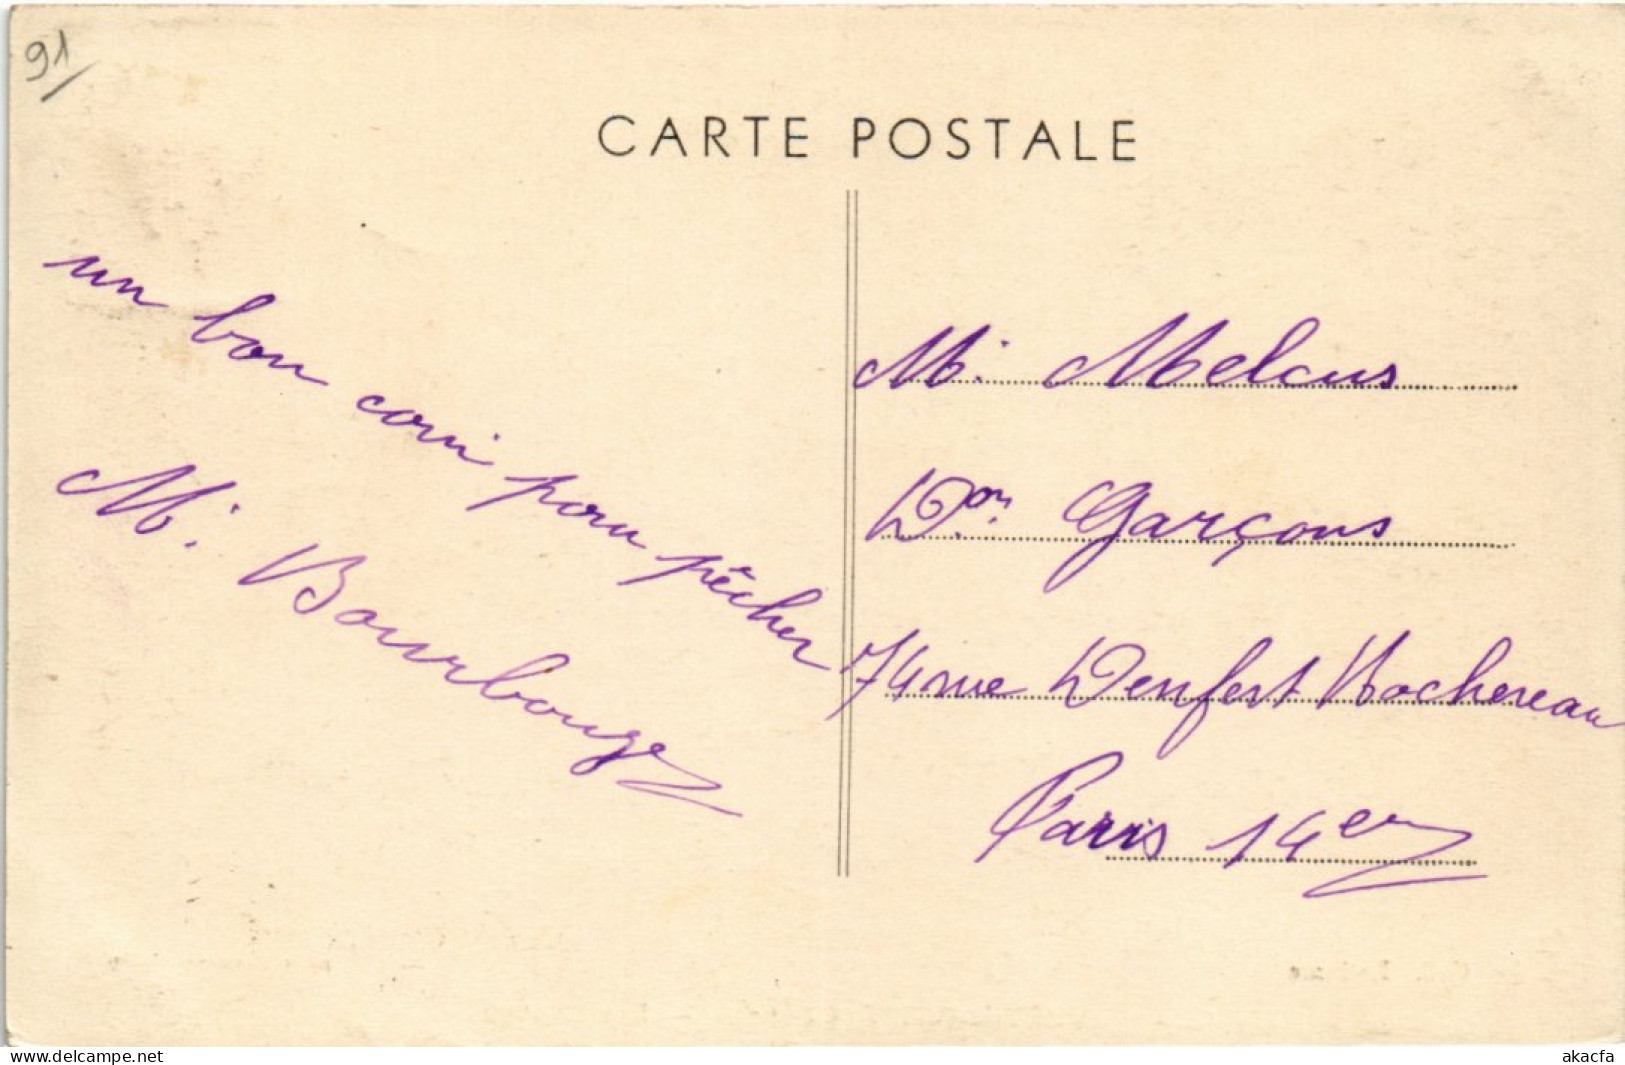 91/
CARTE POSTALE
un bon coin pour pêcher
M. Bourbouze
M. Melcus
Don Garçons
74 rue Denfert Rochereau
Paris 14e
www.delcampe.net
akacfa